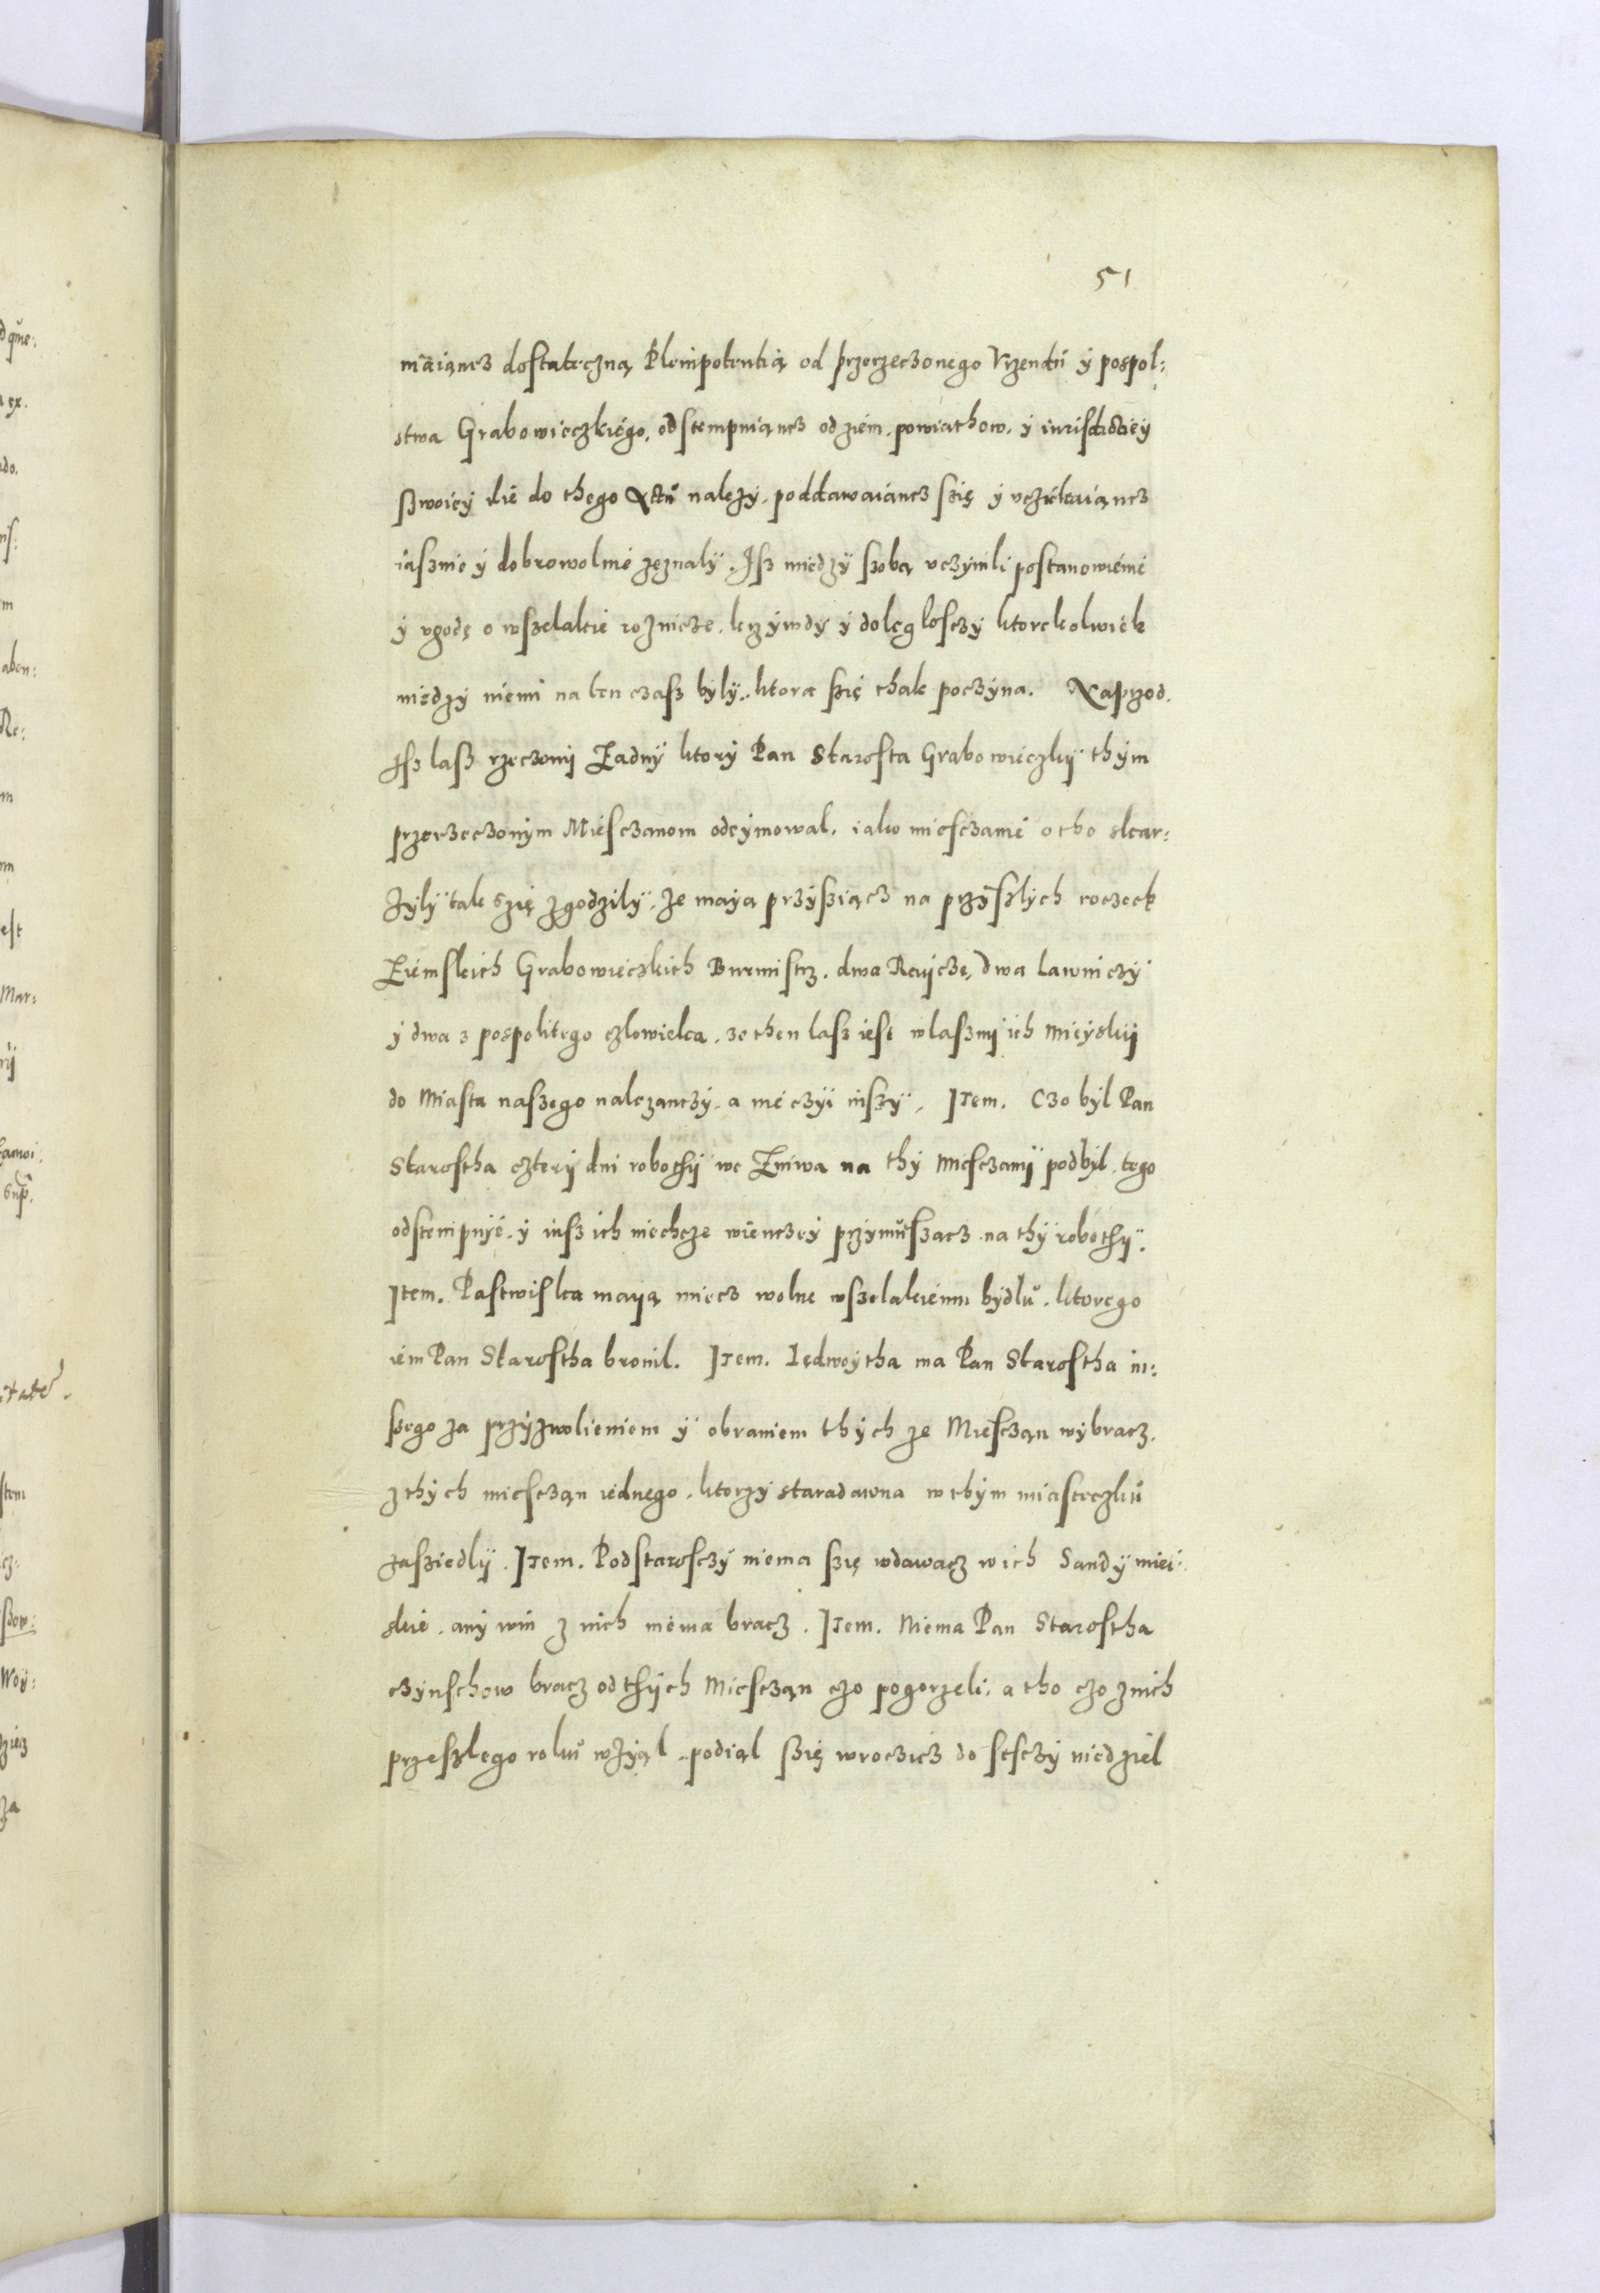 51
maiąncz dostateczną Plenipotentią od przerzeczonego Vrzendu y pospol:
stwa Grabowieczkiego, odstempuiąncz od ziem. powiathow. y iurisdictiey
szwoiey ile do thego Actu należy. poddawaiancz szię y vczekaiąncz
iasznie y dobrowolnie zeznaly. Isz miedzy szobą vczynili postanowienie
y vgodę o wszelakie roznicze. krzywdy y doleglosczy ktorekolwiek
miedzy niemi na ten czasz były. ktora szię thak poczyna. Naprzod.
Isz lasz rzeczony Żadny ktory Pan Starosta Grabowieczky thym
przerzeczonym Miesczanom odeymowal. iako miesczanie o tho skar:
zyly tak szię zgodzily. ze mayą przysziącz na przyszlych roczek
Ziemskich Grabowieczkich Burmistrz. dwa Rayczę, dwa lawniczy
y dwa z pospolitego czlowieka. ze then lasz iest wlaszny ich Mieysky
do Miasta naszego należanczy. a nie czyi inszy. Item. Czo byl Pan
Starostha cztery dni robothy we Żniwa na thy Miesczany podbyl. tego
odstempuie. y iusz ich niechcze wienczey przymuszacz na thy robothy.
Item. Pastwiska mayą miecz wolne wszelakiemu bydlu. ktorego
iem Pan Starostha bronil. Item. Lędwoytha ma Pan Starostha in:
szego za przyzwolieniem y obraniem thych ze Miesczan wybracz.
z thych miesczan iednego. ktorzy staradawna w thym miasteczku
zasziedly. Item. Podstarosczy niema szię wdawacz w ich Sandy miei:
skie. any win z nich niema bracz. Item. Niema Pan Starostha
czynschow bracz od thych Miesczan czo pogorzeli. a tho czo z nich
przeszlego roku wział. podiąl szię wroczicz do sesczy niedziel